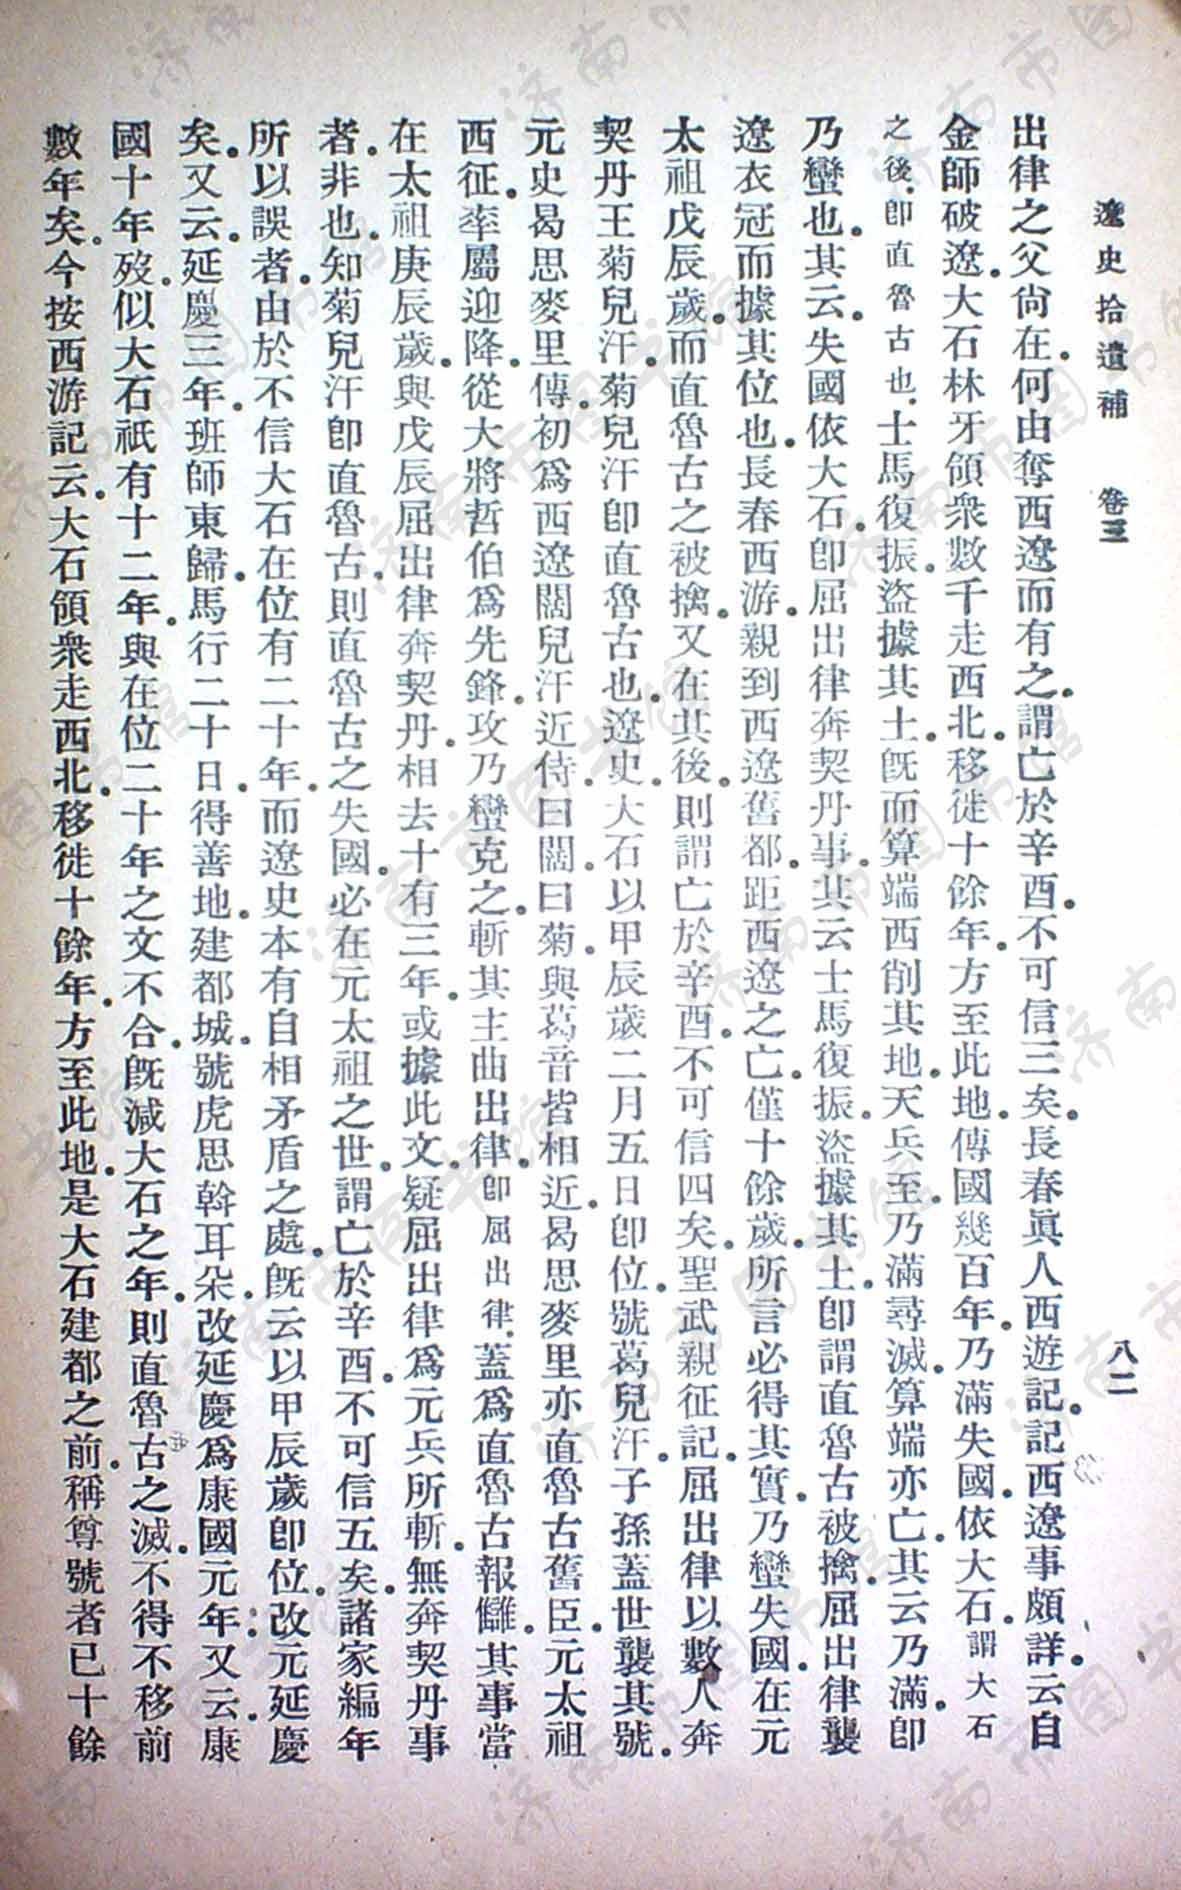 遼史拾遺補　卷三　八二
出律之父尙在。何由奪西遼而有之。謂亡於辛酉。不可信三矣。長春眞人西遊記。記西遼事頗詳。云自
金師破遼。大石林牙領衆數千走西北。移徙十餘年。方至此地。傳國幾百年。乃滿失國。依大石。謂大石
之後。卽直魯古也。士馬復振。盜據其土。旣而算端西削其地。天兵至。乃滿尋滅。算端亦亡。其云乃滿。卽
乃蠻也。其云。失國依大石。卽屈出律奔契丹事。其云士馬復振。盜據其土。卽謂直魯古被擒。屈出律襲
遼衣冠而據其位也。長春西游。親到西遼舊都。距西遼之亡。僅十餘歲。所言必得其實。乃蠻失國。在元
太祖戊辰歲。而直魯古之被擒。又在其後。則謂亡於辛酉。不可信四矣。聖武親征記。屈出律以數人奔
契丹王菊兒汗。菊兒汗卽直魯古也。遼史。大石以甲辰歲二月五日卽位。號葛兒汗。子孫蓋世襲其號。
元史曷思麥里傳。初爲西遼闊兒汗近侍。曰闊。曰菊。與葛音皆相近。曷思麥里亦直魯古舊臣。元太祖
西征。率屬迎降。從大將哲伯爲先鋒。攻乃蠻克之。斬其主曲出律。卽屈出律。蓋爲直魯古報讎。其事當
在太祖庚辰歲。與戊辰屈出律奔契丹。相去十有三年。或據此文。疑屈出律爲元兵所斬。無奔契丹事
者。非也。知菊兒汗卽直魯古。則直魯古之失國。必在元太祖之世。謂亡於辛酉。不可信五矣。諸家編年
所以誤者。由於不信大石在位有二十年。而遼史本有自相矛盾之處。旣云以甲辰歲卽位。改元延慶
矣。又云。延慶三年。班師東歸。馬行二十日。得善地。建都城。號虎思斡耳朵。改延慶爲康國元年。又云。康
國十年歿。似大石祇有十二年。與在位二十年之文不合。旣減大石之年。則直魯古之滅。不得不移前
數年矣。今按西游記云。大石領衆走西北。移徙十餘年。方至此地。是大石建都之前。稱尊號者已十餘